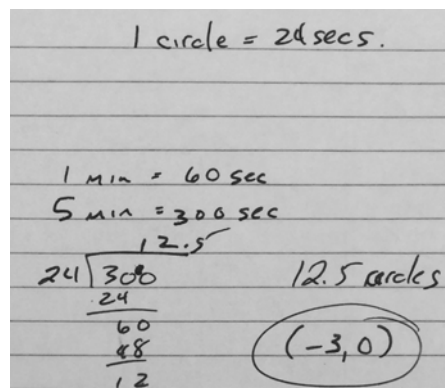 1 circle = 24 secs.
1 min = 60 sec
5 min = 300 sec
12.5
24 300
24
60
48
12
12.5 circles
(-3, 0)